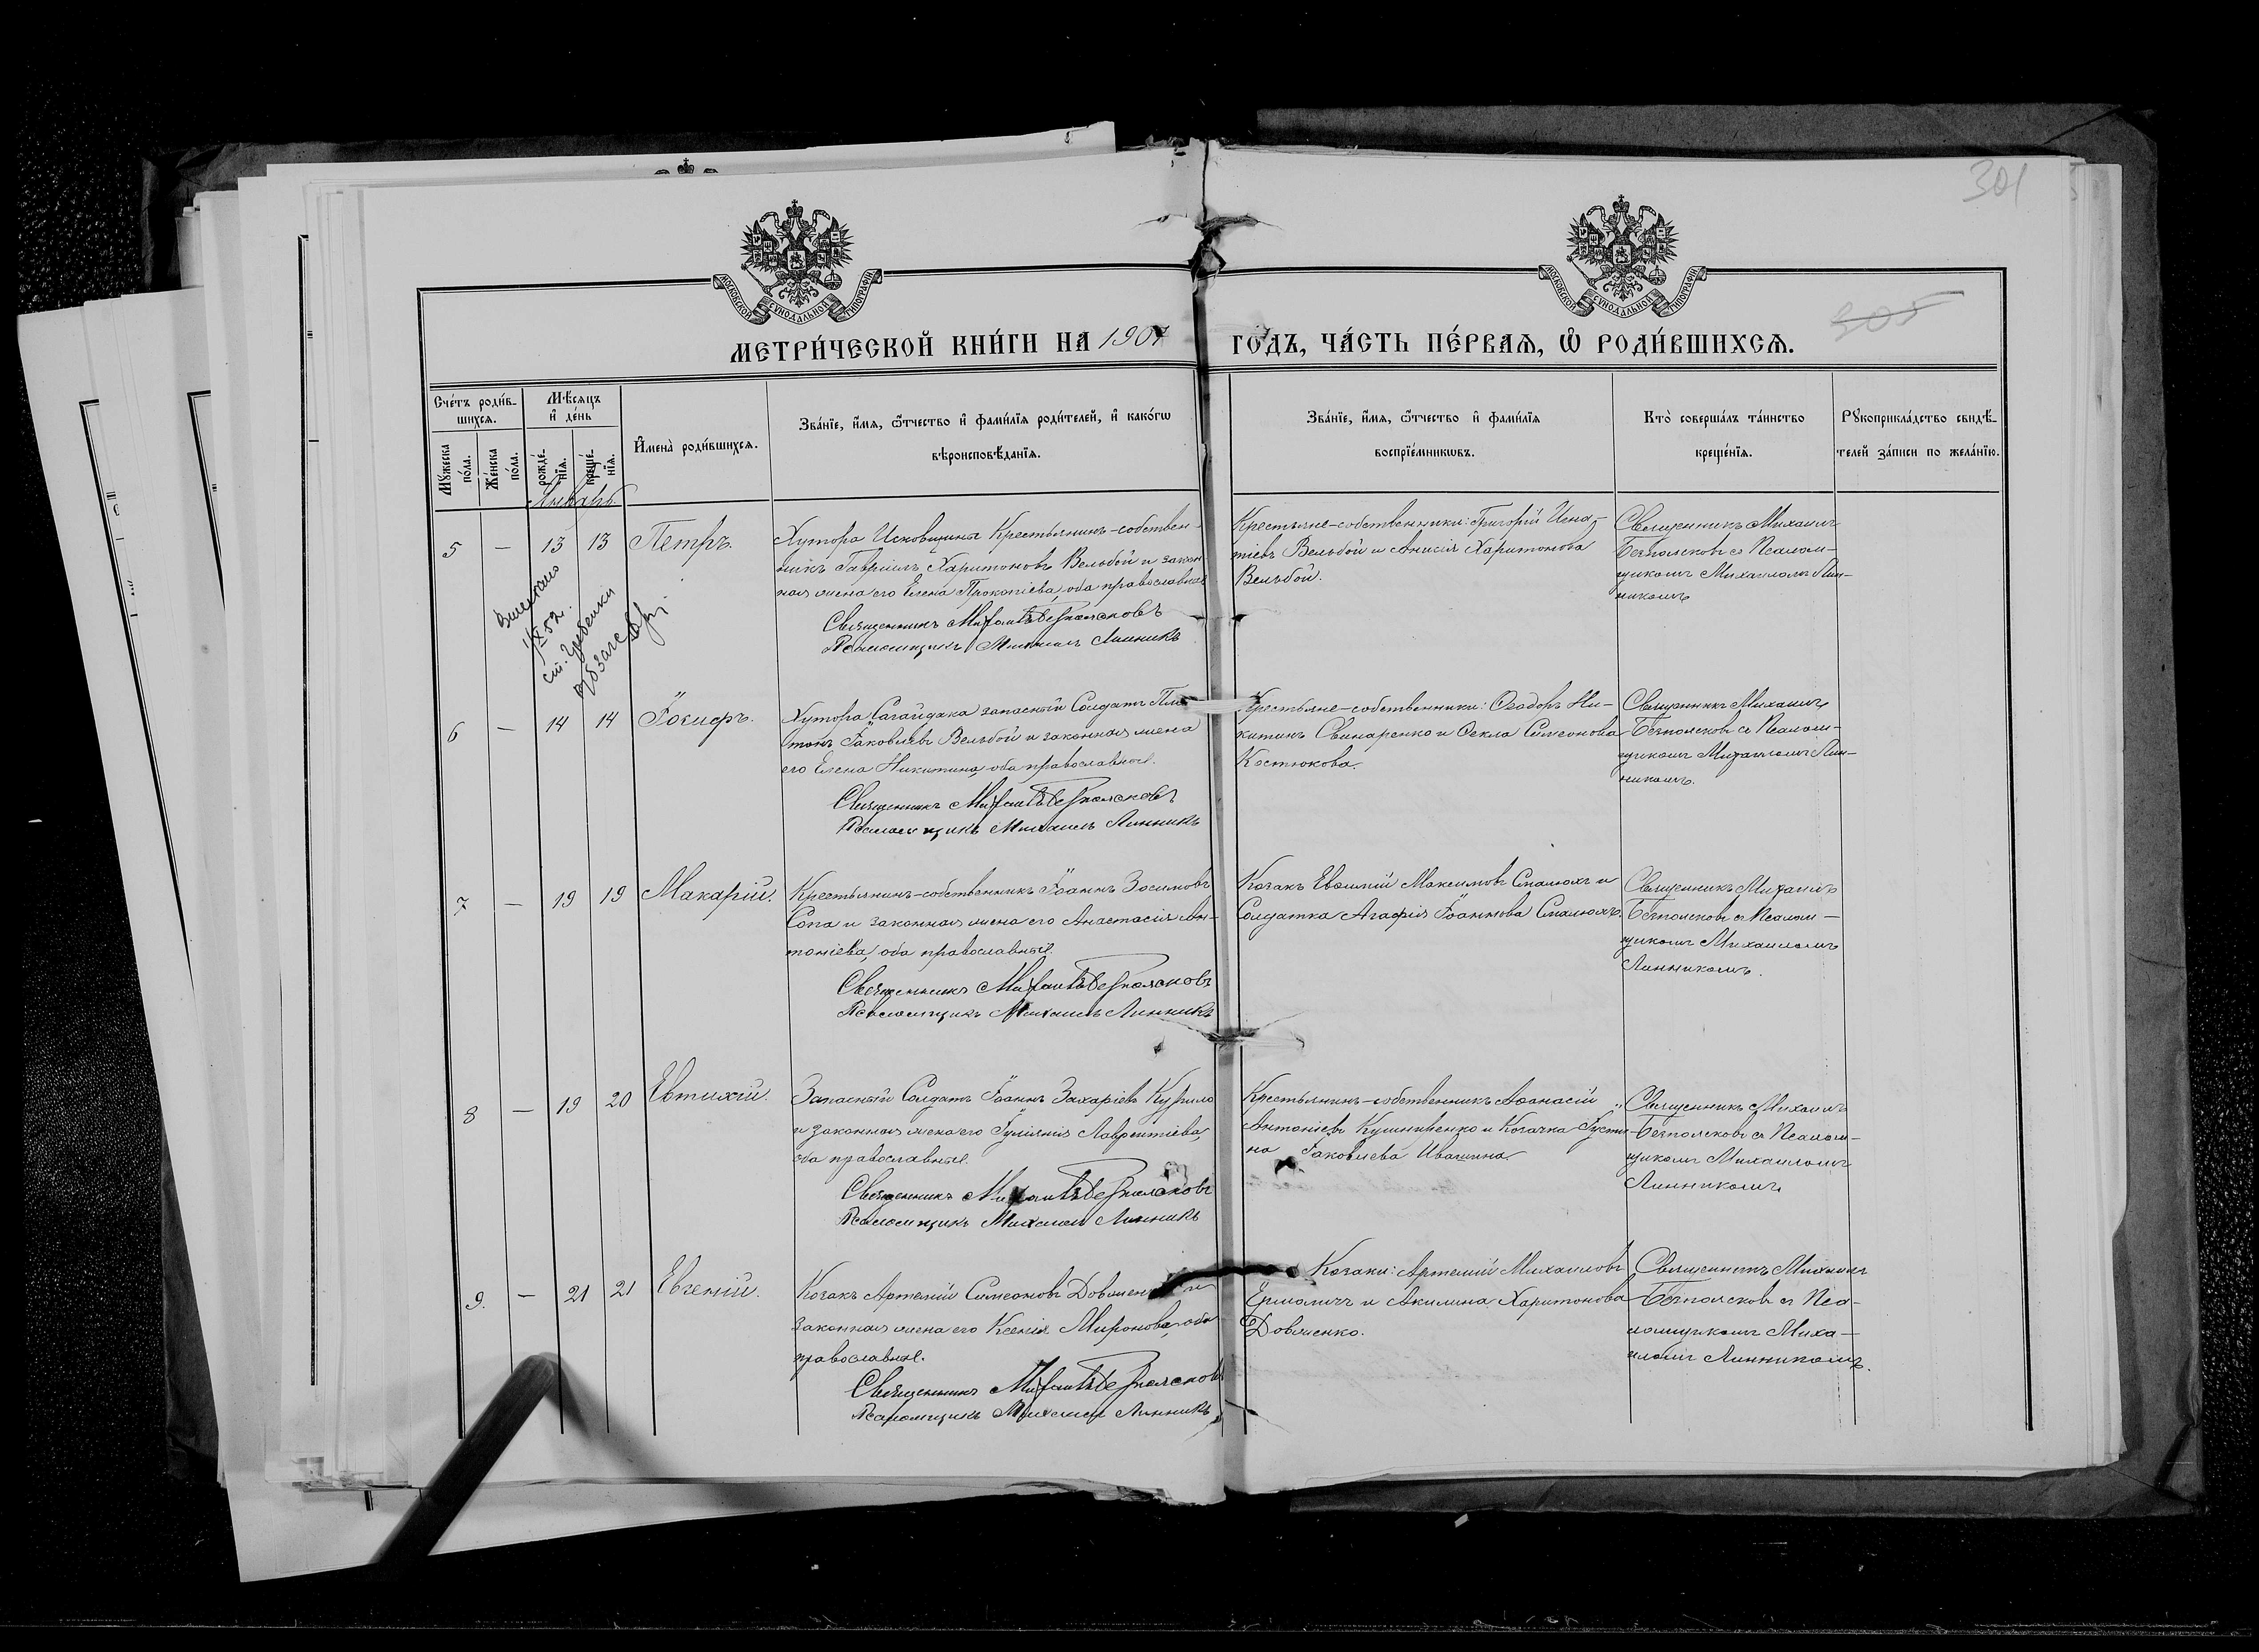 301
305
МОСКОВСКОЙ СѴНОДАЛЬНОЙ ТИПОГРАФІИ
МОСКОВСКОЙ СѴНОДАЛЬНОЙ ТИПОГРАФІИ
МЕТРИ́ЧЕСКОЙ КНИ́ГИ НА 1907 ГО́ДЪ, ЧА́СТЬ ПЕ́РВАѦ, Ѡ҆ РОДИ́ВШИХСѦ.
Сче́тъ роди́в-
шихсѧ.
Мꙋ́жеска по́ла.
Же́нска по́ла.
Мѣ́сѧцъ
и҆ де́нь
рожде́-
нїѧ.
креще́-
нїѧ.
И҆мена̀ роди́вшихсѧ.
Зва́нїе, и҆́мѧ, ѻ҆́тчество и҆ фами́лїѧ роди́телей, и҆ како́гѡ
вѣроисповѣ́данїѧ.
Зва́нїе, и҆́мѧ, ѻ҆́тчество и҆ фами́лїѧ
воспрїе́мникѡвъ.
Кто̀ соверша́лъ та́инство
креще́нїѧ.
Рꙋкоприкла́дство свидѣ́-
телей за́писи по жела́нїю.
Январь.
5 — 13 13 Петръ.
Хутора Исковщины Крестьянинъ-собствен-
никъ Гавріилъ Харитоновъ Вельбой и закон
ная жена его Елена Прокопіева, оба православные
Священникъ Михаилъ Безпоясковъ
Псаломщикъ Михаилъ Линникъ
Крестьяне-собственники: Григорій Игна-
тіевъ Вельбой и Анисія Харитонова
Вельбой.
Священникъ Михаилъ
Безпоясковъ съ Псалом-
щикомъ Михаиломъ Лин-
никомъ
ст. Гребенки
6 — 14 14 Іосифъ.
Хутора Сагайдака запасный Солдатъ Пла
тонъ Іаковлевъ Вельбой и законная жена
его Елена Никитина, оба православные.
Священникъ Михаилъ Безпоясковъ
Псаломщикъ Михаилъ Линникъ
Крестьяне-собственники: Ѳеодоръ Ни-
китинъ Свинаренко и Ѳекла Симеонова
Костюкова.
Священникъ Михаилъ
Безпоясковъ съ Псалом-
щикомъ Михаиломъ Лин-
никомъ.
7 — 19 19 Макарій.
Крестьянинъ-собственникъ Іоаннъ Зосимовъ
Сопа и законная жена его Анастасія Ан-
тоніева, оба православные.
Священникъ Михаилъ Безпоясковъ
Псаломщикъ Михаилъ Линникъ
Козакъ Евѳимій Максимовъ Смалюхъ и
Солдатка Агафія Іоаннова Смалюхъ.
Священникъ Михаилъ
Безпоясковъ съ Псалом-
щикомъ Михаиломъ
Линникомъ.
8 — 19 20 Евтихій.
Запасный Солдатъ Іоаннъ Захаріевъ
и законная жена его Іуліанія Лаврентіева,
оба православные.
Священникъ Михаилъ Безпоясковъ
Псаломщикъ Михаилъ Линникъ
Крестьянинъ-собственникъ Аѳанасій
Антоніевъ Кушниренко и Козачка Іусти-
на Іаковлева Ивашина.
Священникъ Михаилъ
Безпоясковъ съ Псалом-
щикомъ Михаиломъ
Линникомъ.
9. — 21 21 Евгеній.
Козакъ Артемій Симеоновъ Довжен и
законная жена его Ксенія Миронова, оба
православные.
Священникъ Михаилъ Безпоясковъ
Псаломщикъ Михаилъ Линникъ
Козаки: Артемій Михаиловъ
Ермоличъ и Акилина Харитонова
Довженко.
Священникъ Михаилъ
Безпоясковъ съ Пса-
ломщикомъ Миха-
иломъ Линникомъ.